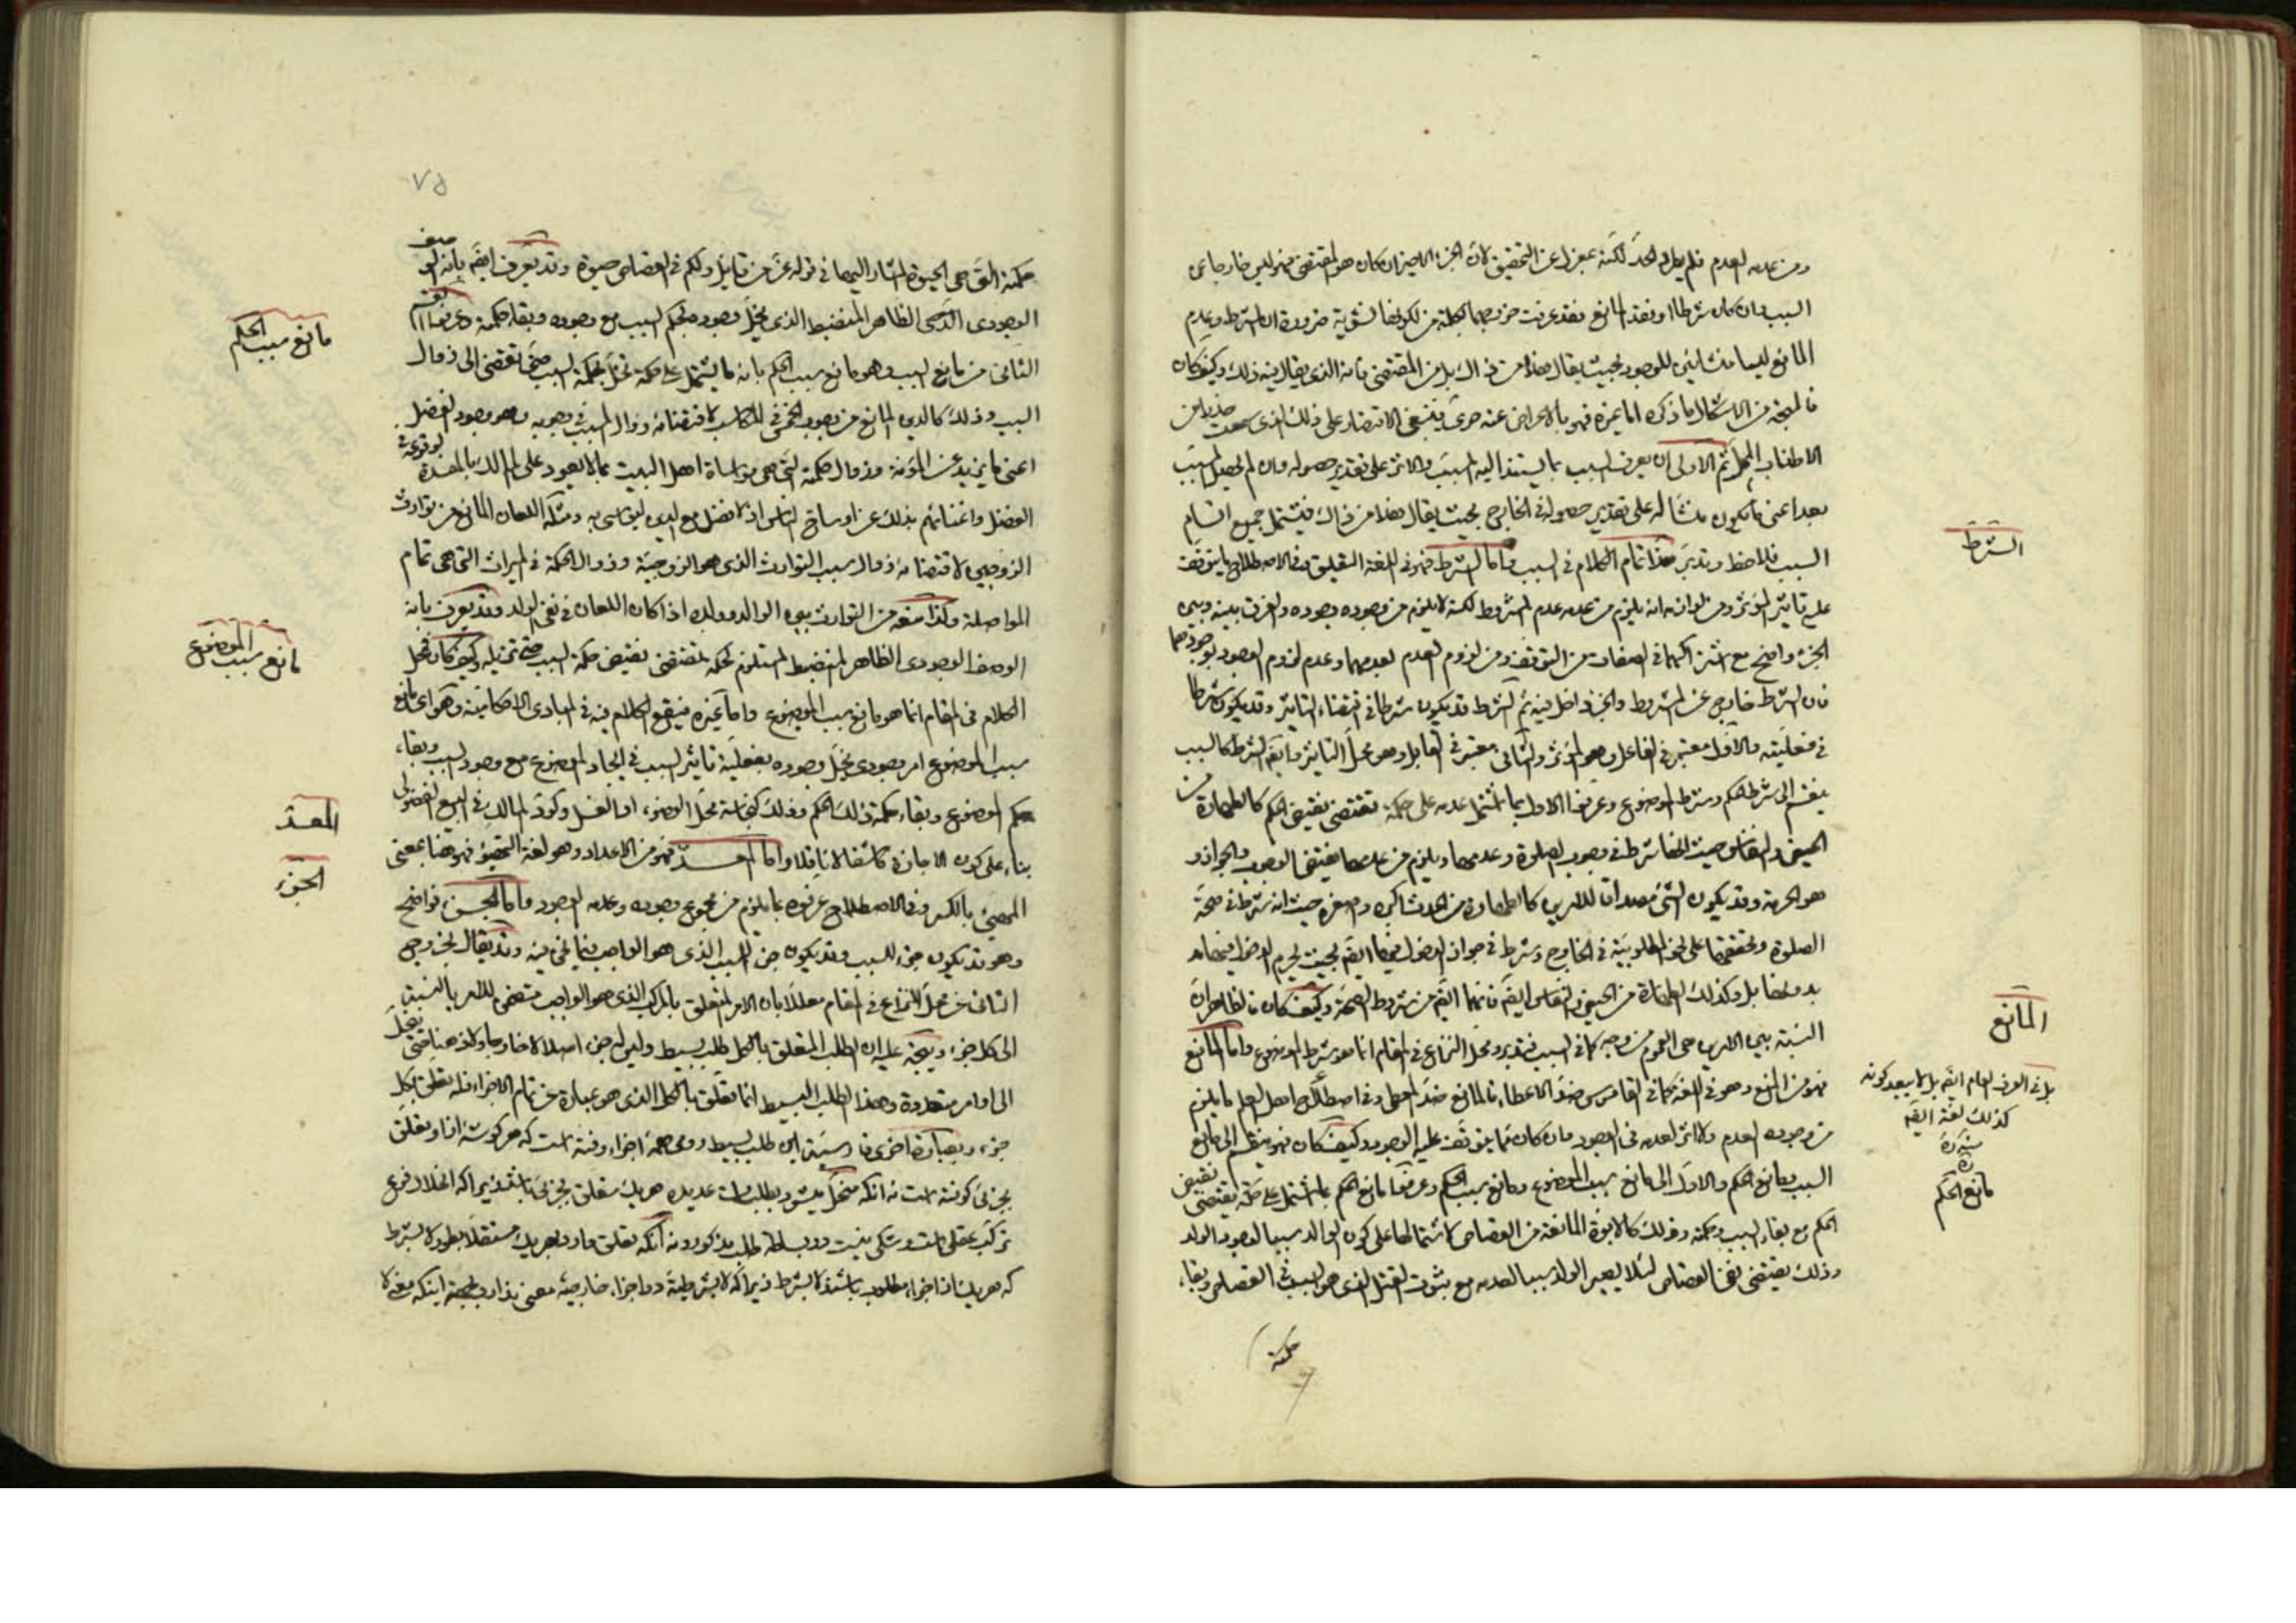 ومن عدمه العدم فلم يطرد الحد لكنه بمعزل عن التحقيق لان الجزء الاخير ان كان هو المقتضى فهو ليس خارجا عن
السبب وان كان شرطا او فقد المانع فقد عرفت خروجهما بكلمة من لكونها نشوية ضرورة ان الشرط وعدم
المانع ليسا منشأين للوجود بحيث يقال هذا من ذاك بل من المقتضى فانه الذي يقال فيه ذلك وكيف كان
فالمتجه من الاشكال ما ذكره اما غيره فهو بالاعراض عنه حرى فينبغي الاقتصار على ذلك الذي سمعت حذرا من
الاطناب الممل ثم الاولى ان يعرف السبب بما يستند اليه المسبب والاثر على تقدير حصوله وان لم يحصل المسبب
بعد اعنى ما يكون منشأ له على تقدير حصوله في الخارج بحيث يقال هذا من ذاك فيشتمل جميع اقسام
السبب فلاحظ وتدبر هذا تمام الكلام في السبب واما الشرط فهو في اللغة التعليق وفي الاصطلاح ما يتوقف
عليه تاثير المؤثر ومن لوازمه انه يلزم من عدمه عدم المشروط لكنه لا يلزم من وجوده وجوده والفرق بينه وبين
الجزء واضح مع اشتراكهما في الصفات من التوقف ومن لزوم العدم لعدمهما وعدم لزوم الوجود لوجودهما
فان الشرط خارج عن المشروط والجزء داخل فيه ثم الشرط قد يكون شرطا في اقتضاء التاثير وقد يكون شرطا
في فعليته والاول معتبر في الفاعل وهو المؤثر والثاني معتبر في القابل وهو محل التاثير وايضا الشرط كالسبب
ينقسم الى شرط الحكم وشرط الموضوع وعرفوا الاول بما اشتمل عدمه على حكمة تقتضى نقيض الحكم كالطهارة من
الحيض والنفاس حيث انها شرط في وجوب الصلوة وعدمها ويلزم من عدمها نقيض الوجوب والجواز و
هو الحرمة وقد يكون الشئ مصداقا للامرين كالطهارة من الحدث اكبره واصغره حيث انه شرط في صحة
الصلوة وتحققها على نحو المطلوبية في الخارج وشرط في جواز الدخول فيها ايضا بحيث يحرم الدخول فيها
بدونها بل وكذلك الطهارة من الحيض والنفاس ايضا فانهما ايضا من شروط الصحة وكيف كان فالظاهر ان
النسبة بين الامرين هي العموم من وجه كما في السبب فتدبر ومحل النزاع في المقام انما هو شرط الموضوع واما المانع
فهو من المنع وهو في اللغة كما في القاموس ضد الاعطاء فالمانع ضد المعطى وفي اصطلاح اهل العلم ما يلزم
من وجوده العدم ولا اثر لعدمه في الوجود وان كان مما يتوقف عليه الوجود وكيف كان فهو ينقسم الى مانع
السبب ومانع الحكم والاول الى مانع سبب الموضوع ومانع سبب الحكم وعرفوا مانع الحكم بما اشتمل على حكمة تقتضى نقيض
الحكم مع بقاء السبب وحكمته وذلك كالابوة المانعة من القصاص لاشتمالها على كون الوالد سببا لوجود الولد
وذلك يقتضى نفى القصاص لئلا يصير الولد سببا لعدمه مع ثبوت القتل الذي هو السبب في القصاص وبقاء
حكمته
الشرط
المانع
بل في العرف العام ايضا بل لا يبعد كونه
كذلك لغة ايضا
منه
مانع الحكم
٧٥
حكمته التي هي الحيوة المشار اليها في قوله عز من قايل ولكم في القصاص حيوة وقد يعرف ايضا بانه الوصف
الوجودى الظاهر المنضبط الذي يخل وجوده بحكم السبب مع وجوده وبقاء حكمته وعرفوا القسم
الثاني من مانع السبب وهو مانع سبب الحكم بانه ما يشتمل على حكمة تخل بحكمة السبب حتى تفضى الى زوال
السبب وذلك كالدين المانع من وجوب الخمس في المكاسب لاقتضائه زوال السبب في وجوبه وهو وجود الفضل
اعنى ما يزيد عن المؤنة وزوال حكمته التي هي مواساة اهل البيت بما لا يعود على المالك بالمفسدة لوقوعه في
الفضل واغنائهم بذلك عن اوساخ الناس اذ لا فضل مع الدين ليواسى به ومثله اللعان المانع من توارث
الزوجين لاقتضائه زوال سبب التوارث الذي هو الزوجية وزوال الحكمة في الميراث التي هي تمام
المواصلة وكذا منعه من التوارث بين الوالد وولده اذا كان اللعان في نفى الولد وقد يعرف بانه
الوصف الوجودى الظاهر المنضبط المستلزم لحكمة تقتضى نقيض حكمة السبب حتى تزيله وكيف كان فمحل
الكلام في المقام انما هو مانع سبب الموضوع واما غيره فيقع الكلام فيه في المبادى الاحكامية وهو اى مانع
سبب الموضوع امر وجودى يخل وجوده بفعلية تاثير السبب في ايجاد الموضوع مع وجود السبب وبقاء
حكم الموضوع وبقاء حكمة ذلك الحكم وذلك كنجاسة محل الوضوء او الغسل وكرد المالك في البيع الفضولى
بناء على كون الاجازة كاشفة لا ناقلة واما المعد فهو من الاعداد وهو لغة التهيؤ فهو هنا بمعنى
المهيئ بالكسر وفي الاصطلاح عرفوه بما يلزم من مجموع وجوده وعدمه الوجود واما الجزء فواضح
وهو قد يكون جزء السبب وقد يكون جزء المسبب الذي هو الواجب فيما نحن فيه وقد يقال بخروج
الثاني عن محل النزاع في المقام معللا بان الامر المتعلق بالمركب الذي هو الواجب مقتضى للامر بالنسبة
الى كل جزء ويتجه عليه ان الطلب المتعلق بالكل طلب بسيط وليس له جزء اصلا لا خارجا ولا ذهنا حتى ينحل
الى اوامر متعددة وهذا الطلب البسيط انما تعلق بالكل الذي هو عبارة عن تمام الاجزاء فله تعلق بكل
جزء وبعبارة اخرى فارسية اين طلب بسيط روى همه اجزاء رفته است كه هر گوشه از او تعلق
بجزئى گرفته است نه آنكه منحل ميشود بطلبات عديده هر يك متعلق بجزئى باشد زيرا كه انحلال فرع
تركب عقلى است وشكى نيست در بساطة طلب مذكور ونه آنكه تعلق دارد بهر يك مستقلا بطور لا بشرط
كه هر يك از اجزاء مطلوب باشند لا بشرط زيرا كه لا بشرطية در اجزاء خارجيه معنى ندارد بجهة اينكه معنى لا
مانع سبب الحكم
مانع سبب الموضوع
المعد
الجزء